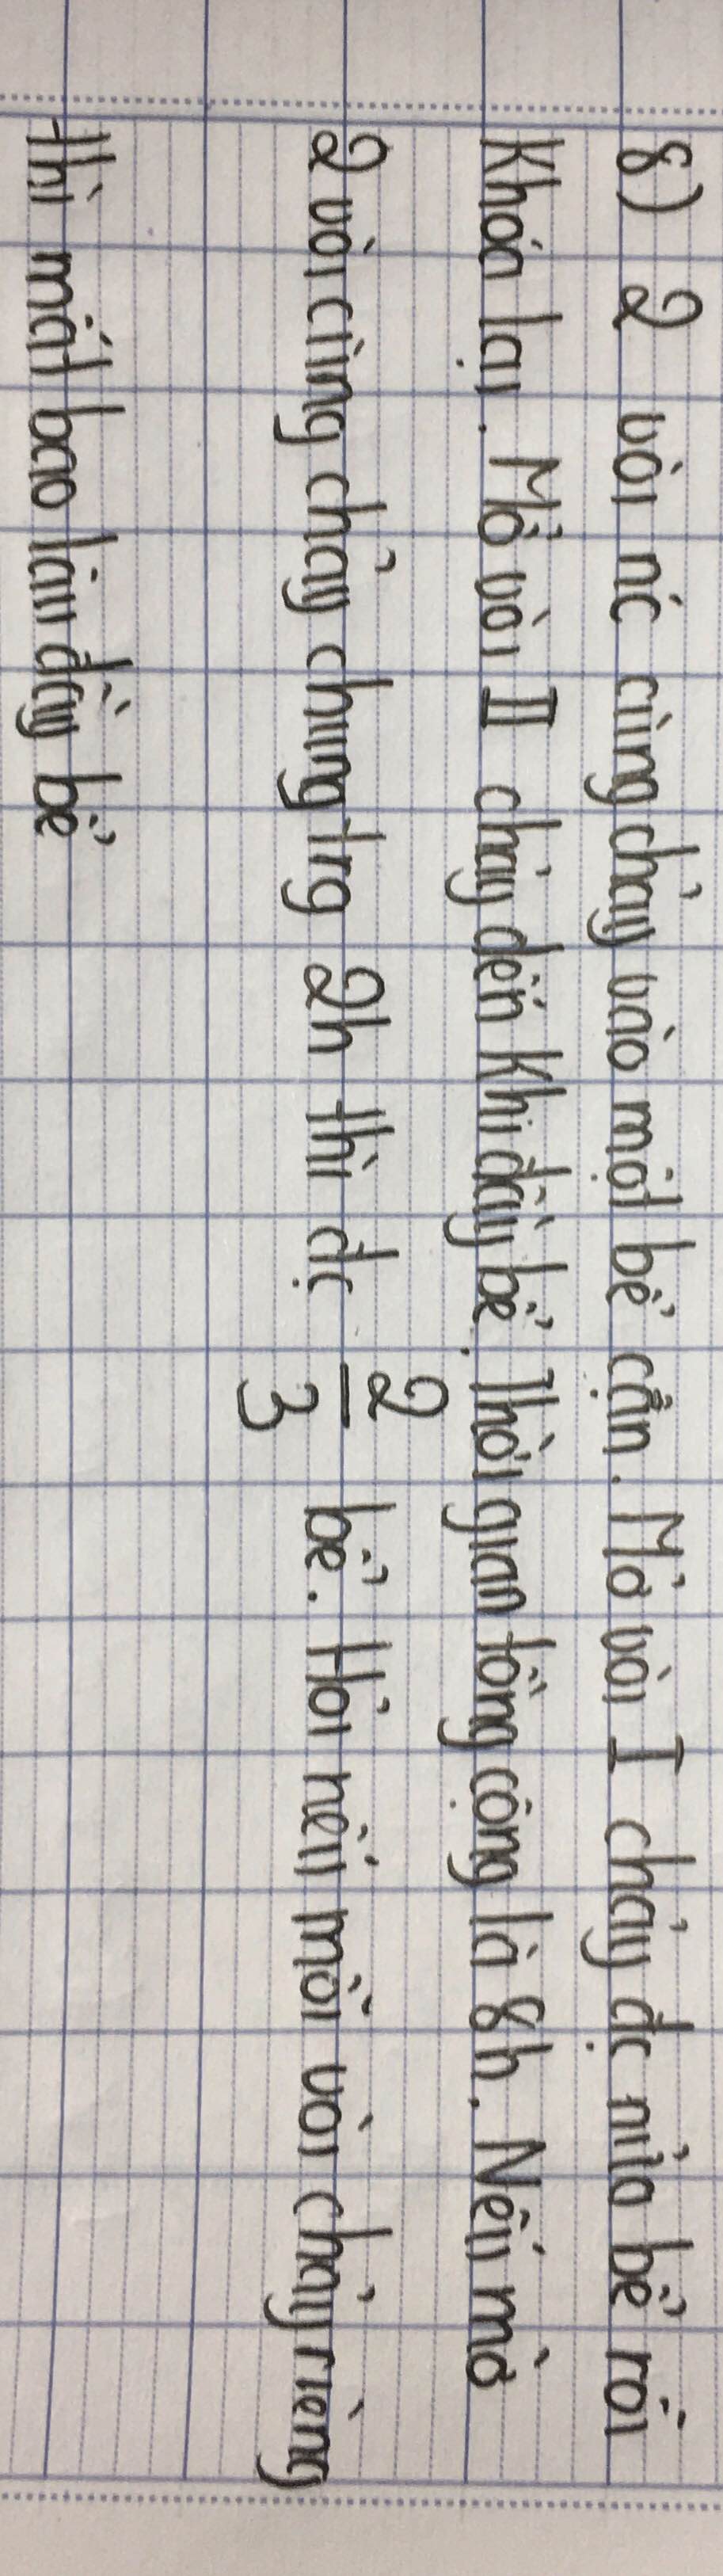 8) 2 vòi nc cùng chảy vào một bể cạn. Mở vòi I chảy đc nửa bể rồi
khóa lại. Mở vòi II chảy đến khi đầy bể. Thời gian tổng cộng là 8h. Nếu mở
2 vòi cùng chảy chung trg 2h thì đc 2/3 bể. Hỏi nếu mỗi vòi chảy riêng
thì mất bao lâu đầy bể